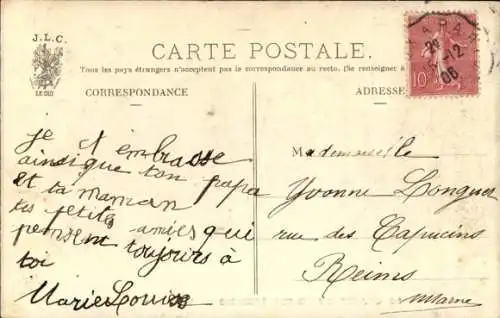 J.L.C.
CARTE POSTALE.
Tous les pays étrangers n'acceptent pas la correspondance au recto. (Se renseigner à
CORRESPONDANCE
ADRESSE
10
12
06
Je t embrasse
ainsi que ton papa
et ta maman
tes petites amies qui
pensent toujours à
toi
Marie Louise
Mademoiselle
Yvonne Longuet
rue des Capucins
Reims
Marne